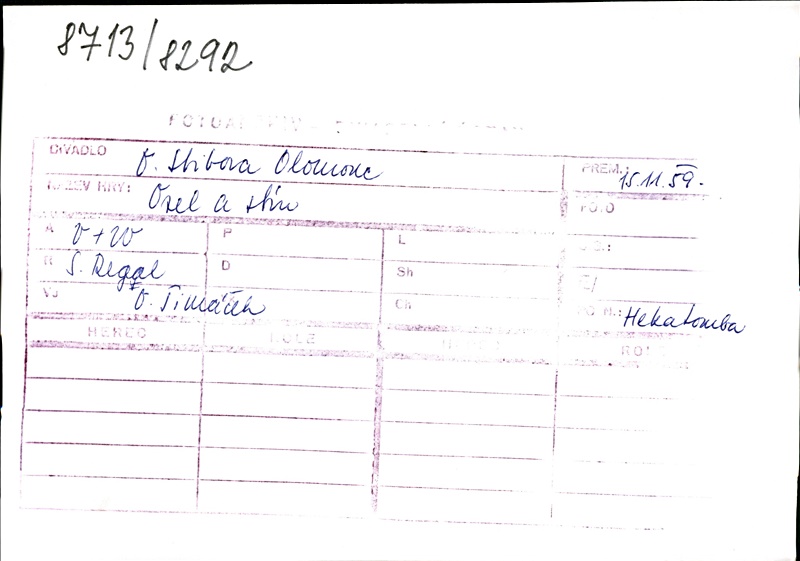 8713/8292
DIVADLO O. Stibora Olomouc PREM.: 15.11.59.
NÁZEV HRY: Osel a stín FOTO
A V+W P L
R S. Regal D Sh Č/
VJ O. Šimáček Ch PO N.: Hekatomba
HEREC ROLE